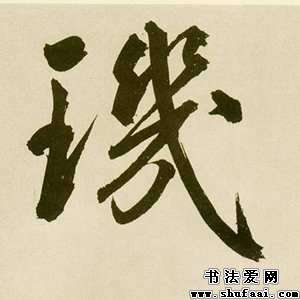 璣
书法爱网
www.shufaai.com